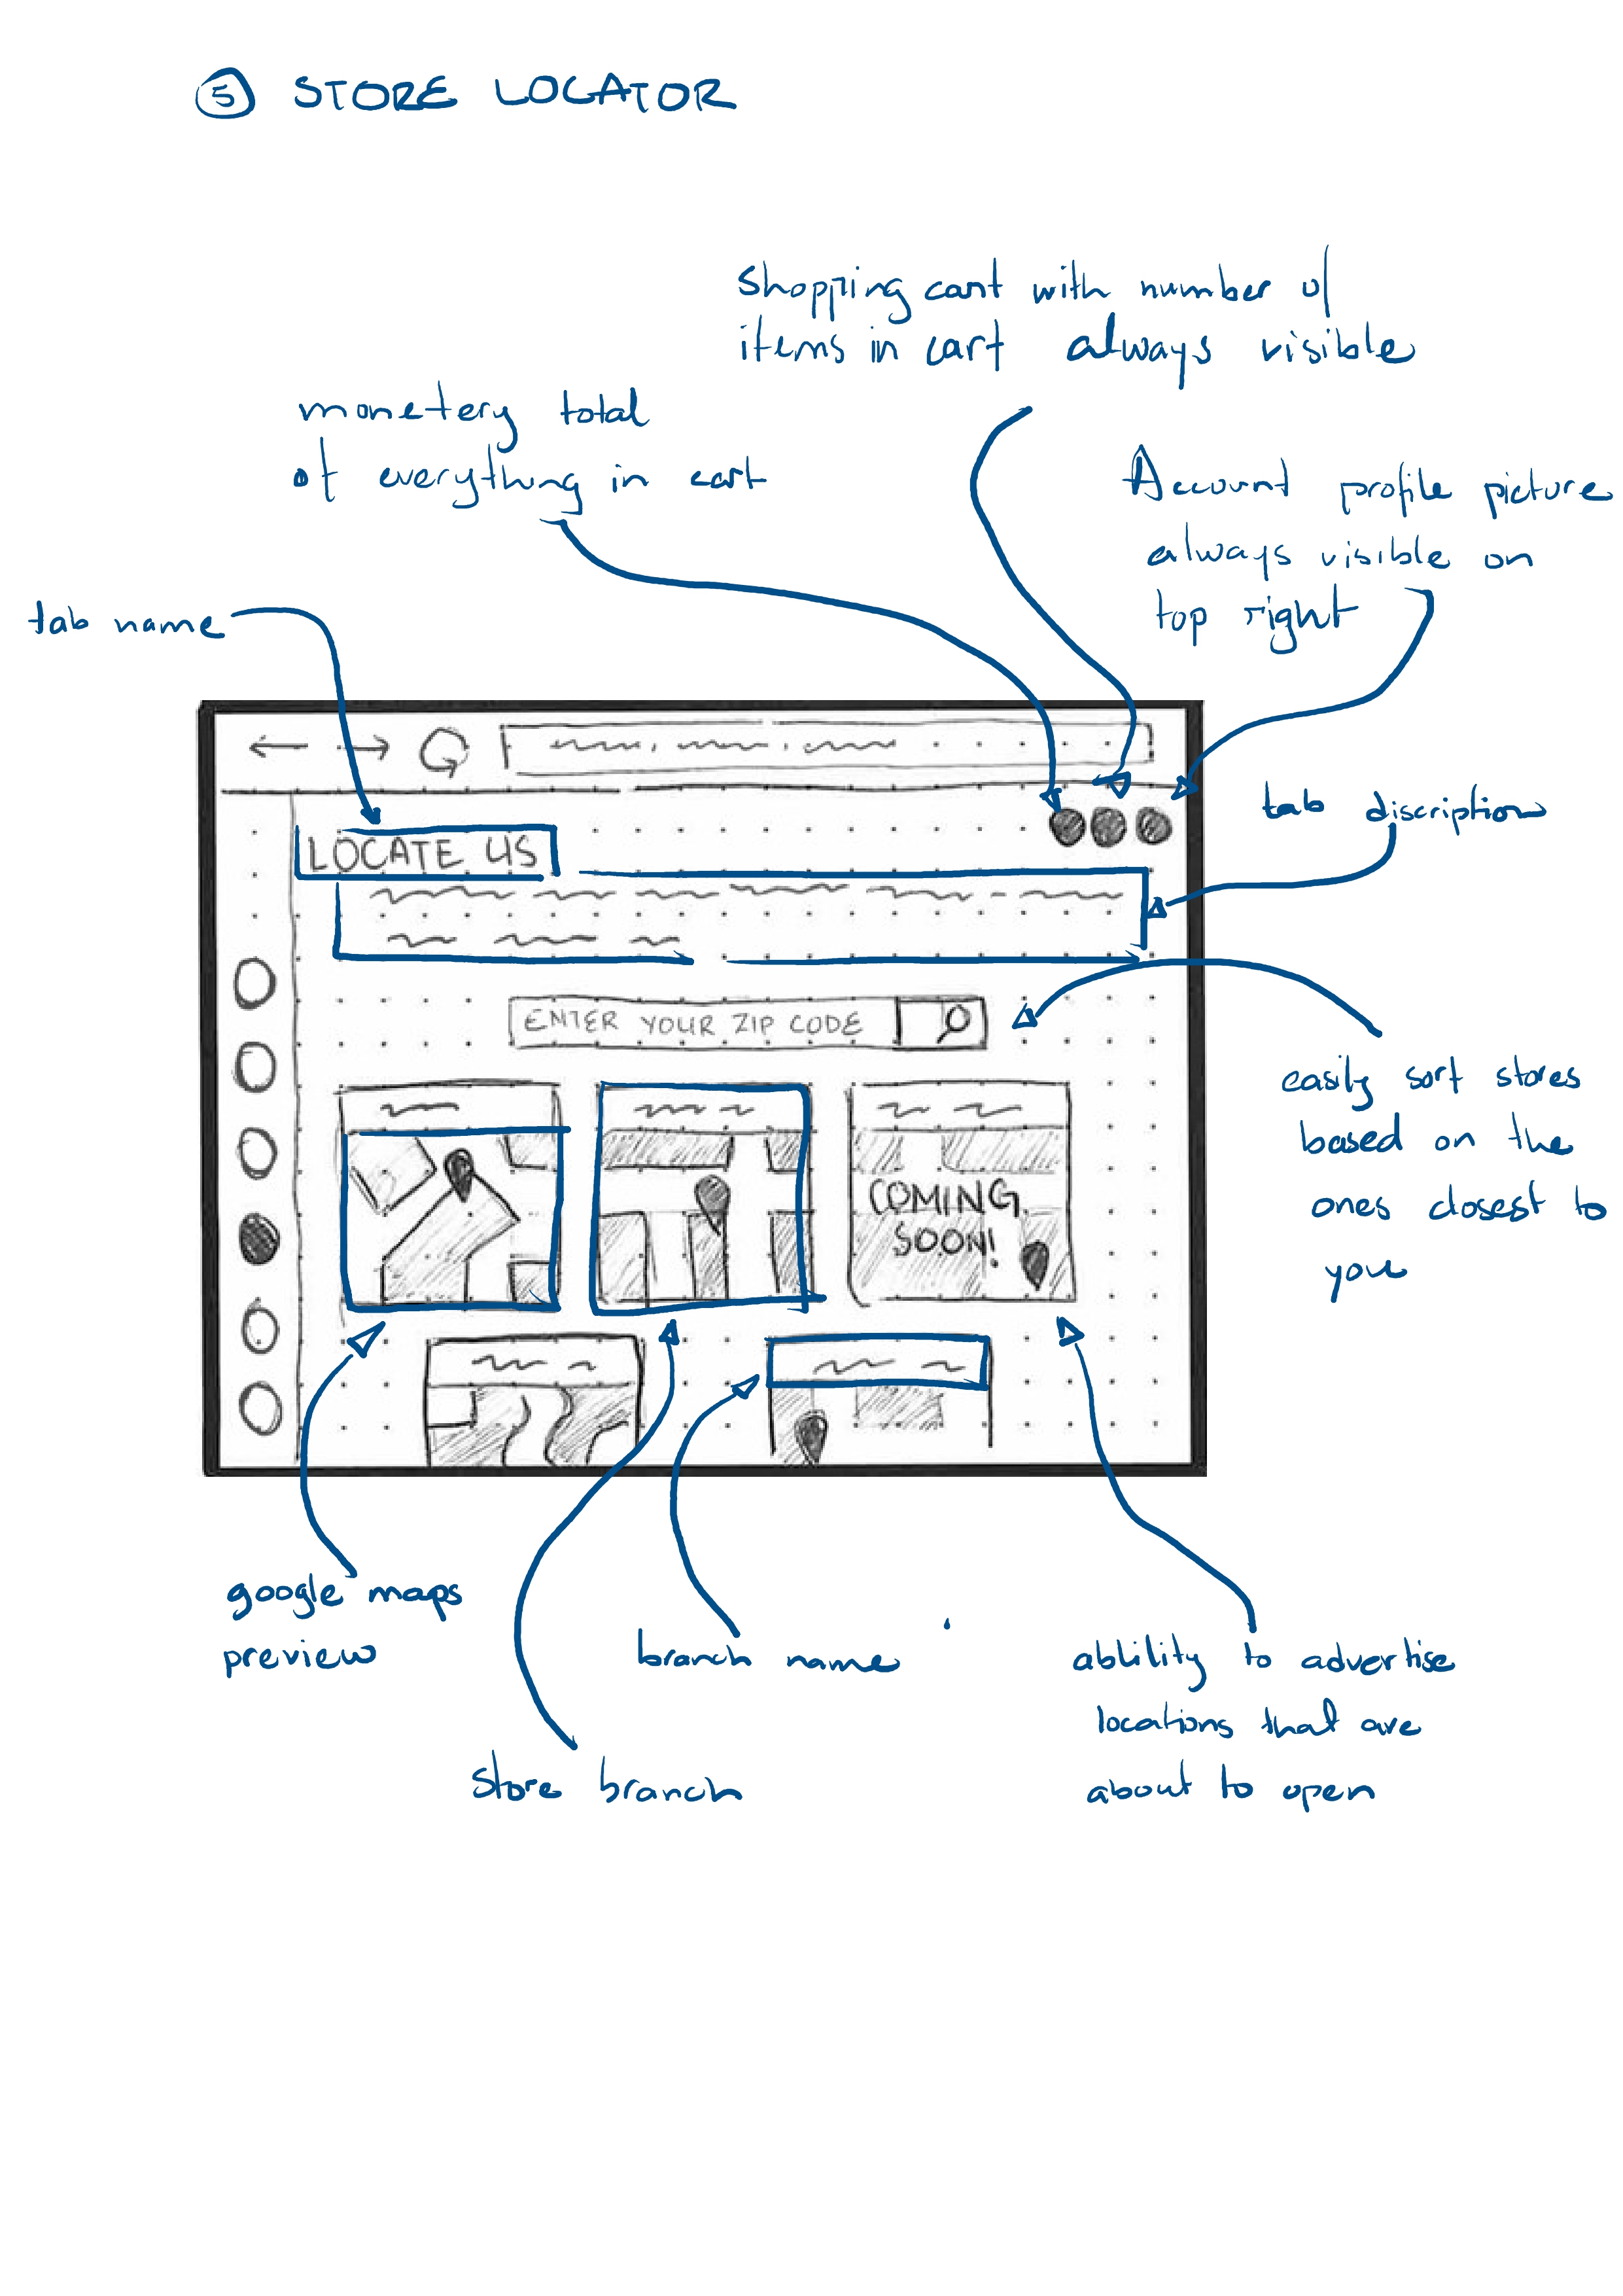 5 STORE LOCATOR
Shopping cart with number of
items in cart always visible
monetery total
of everything in cart
Account profile picture
always visible on
top right
tab name
tab discription
LOCATE US
ENTER YOUR ZIP CODE
easily sort stores
based on the
ones closest to
you
COMING
SOON!
google maps
preview
branch name
store branch
ablility to advertise
locations that are
about to open